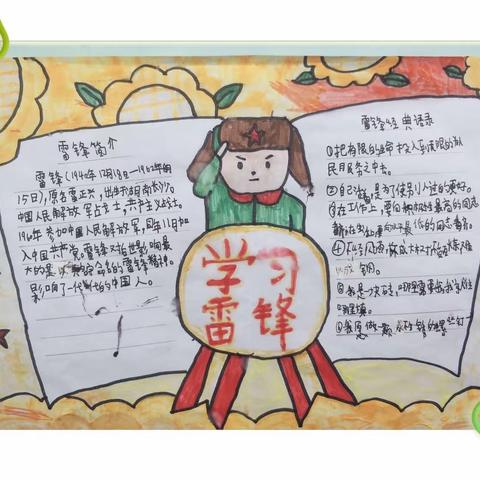 雷锋简介
雷锋(1940年12月18日-1962年8月
15日),原名雷正兴,出生于湖南长沙。
中国人民解放军战士,共产主义战士。
1960年参加中国人民解放军,同年11月加
入中国共产党。雷锋对后世影响最
大的是 雷锋精神。
影响了一代 的中国人。
学习
雷锋
雷锋经典语录
①把有限的生命投入到无限的为人
民服务之中去。
②自己活着,是为了使别人过得更美好。
③在工作上,要向 最高的同志
看齐在生活上 最低的同志看齐。

炼成钢。
我是一块砖,哪里需要 往
哪里
我愿做一颗永不生锈的螺丝钉